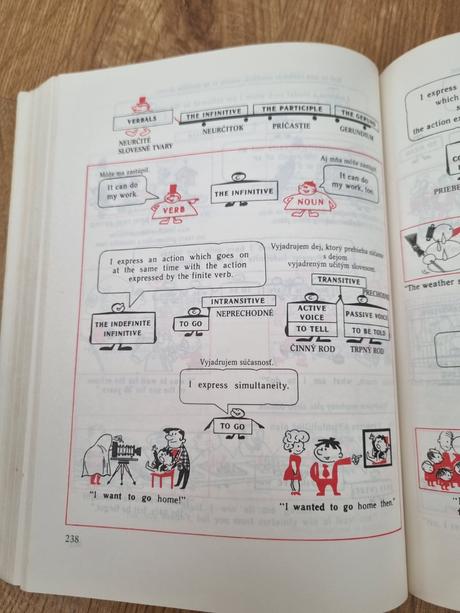 VERBALS
THE INFINITIVE
THE PARTICIPLE
THE GERUND
NEURČITÉ
SLOVESNÉ TVARY
NEURČITOK
PRÍČASTIE
GERUNDIUM
Môže ma zastúpiť.
It can do
my work.
VERB
THE INFINITIVE
Aj mňa môže zastúpiť.
It can do
my work, too.
NOUN
I express an action which goes on
at the same time with the action
expressed by the finite verb.
Vyjadrujem dej, ktorý prebieha súčasne
s dejom
vyjadreným určitým slovesom.
THE INDEFINITE
INFINITIVE
INTRANSITIVE
TO GO
NEPRECHODNÉ
TRANSITIVE
PRECHODNÉ
ACTIVE
VOICE
TO TELL
ČINNÝ ROD
PASSIVE VOICE
TO BE TOLD
TRPNÝ ROD
Vyjadrujem súčasnosť.
I express simultaneity.
TO GO
"I want to go home!"
"I wanted to go home then."
238
I express
which
the action ex
PRIEBE
"The weather s